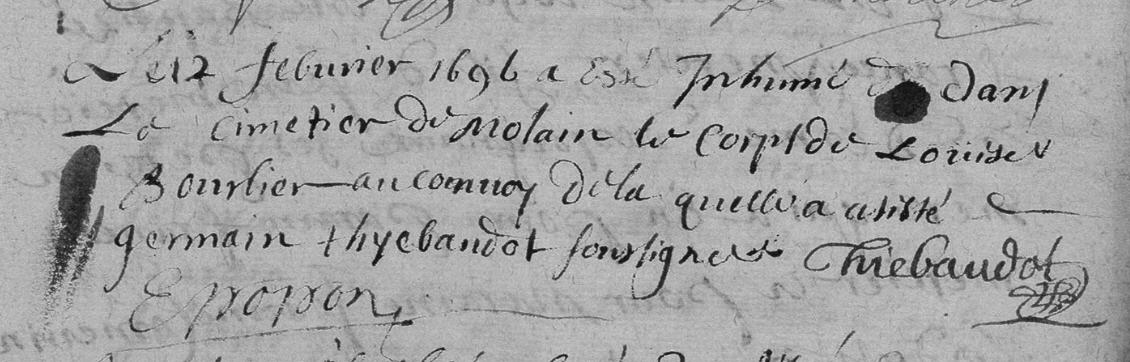 Le 12 feburier 1696 a esté Inhumé dans
Le cimetier de Molain le Corps de Louise
Bourlier au conuoy de la quelle a asisté
germain thyebaudot soussigner Thiebaudot
E popon